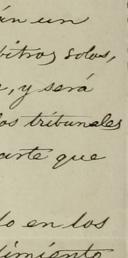 án un
bitros solos,
, y será
los tribunales
arte que
do en los
dimiento